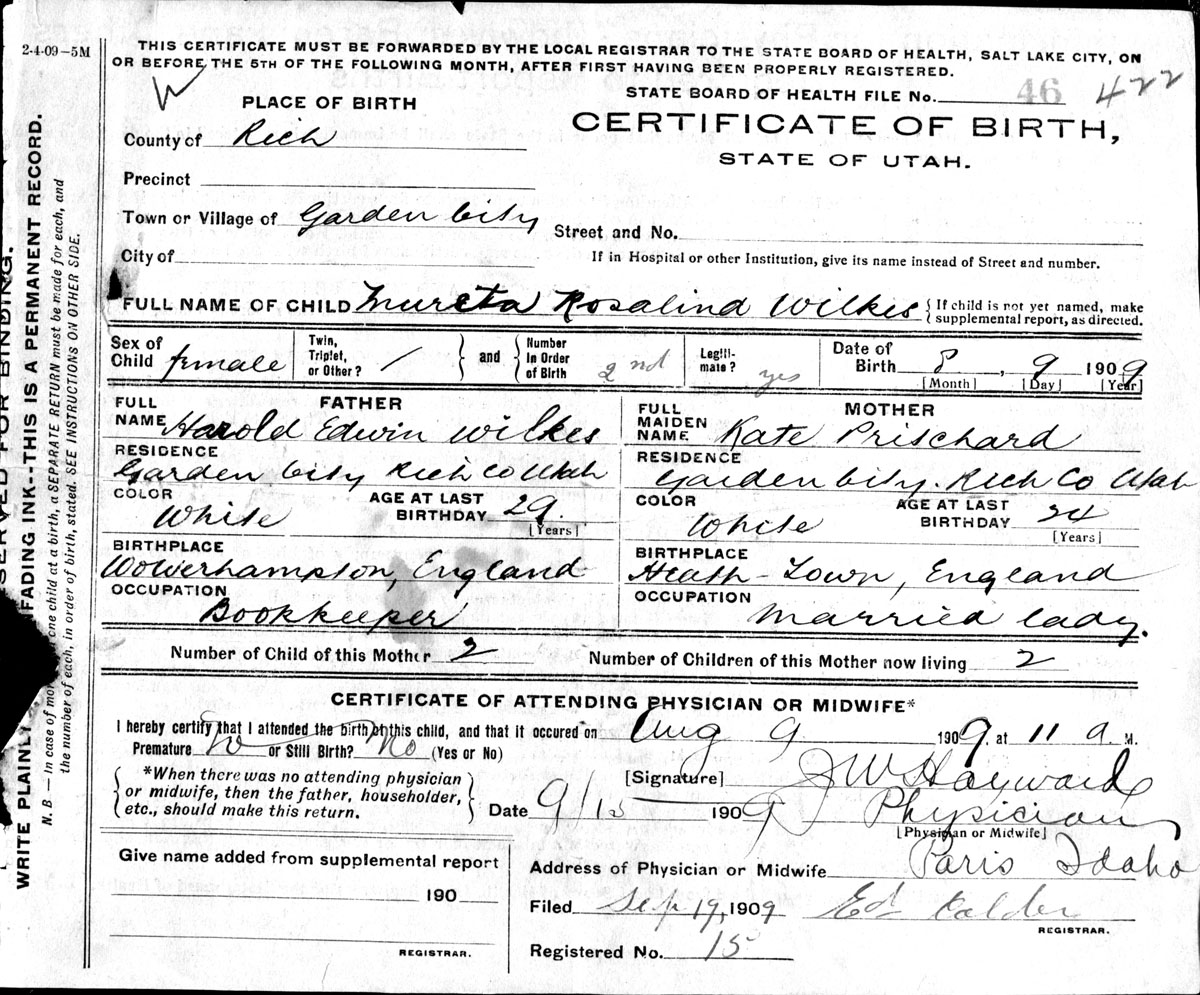 2-4-09-5M
THIS CERTIFICATE MUST BE FORWARDED BY THE LOCAL REGISTRAR TO THE STATE BOARD OF HEALTH, SALT LAKE CITY, ON
OR BEFORE THE 5TH OF THE FOLLOWING MONTH, AFTER FIRST HAVING BEEN PROPERLY REGISTERED.
STATE BOARD OF HEALTH FILE No. 46 422
PLACE OF BIRTH
CERTIFICATE OF BIRTH,
STATE OF UTAH.
County of Rich
Precinct
Town or Village of Garden City
Street and No.
City of
If in Hospital or other Institution, give its name instead of Street and number.
FULL NAME OF CHILD Mureta Rosalind Wilkes {If child is not yet named, make
supplemental report, as directed.
Sex of Child female
Twin, Triplet, or Other? /
and
Number In Order of Birth 2nd
Legiti-mate? yes
Date of Birth 8, 9 1909
[Month] [Day] [Year]
FATHER
FULL NAME Harold Edwin Wilkes
RESIDENCE
Garden City Rich Co Utah
COLOR White
AGE AT LAST BIRTHDAY 29
[Years]
BIRTHPLACE
Wolverhampton, England
OCCUPATION
Bookkeeper
MOTHER
FULL MAIDEN NAME Kate Prischard
RESIDENCE
Garden City. Rich Co Utah
COLOR White
AGE AT LAST BIRTHDAY 24
[Years]
BIRTHPLACE
Heath-Town, England
OCCUPATION
Married lady.
Number of Child of this Mother 2
Number of Children of this Mother now living 2
CERTIFICATE OF ATTENDING PHYSICIAN OR MIDWIFE*
I hereby certify that I attended the birth of this child, and that it occured on Aug 9 1909, at 11 a. M.
Premature No or Still Birth? No (Yes or No)
*When there was no attending physician
or midwife, then the father, householder,
etc., should make this return.
[Signature] J W Hayward
Date 9/15 1909 Physician
[Physician or Midwife]
Give name added from supplemental report
190
REGISTRAR.
Address of Physician or Midwife Paris Idaho
Filed Sep 19, 1909 Ed Calder
REGISTRAR.
Registered No. 15
SERVED FOR BINDING.
WRITE PLAINLY FADING INK--THIS IS A PERMANENT RECORD.
N. B.—In case of mo one child at a birth, a SEPARATE RETURN must be made for each, and
the number of each, in order of birth, stated. SEE INSTRUCTIONS ON OTHER SIDE.